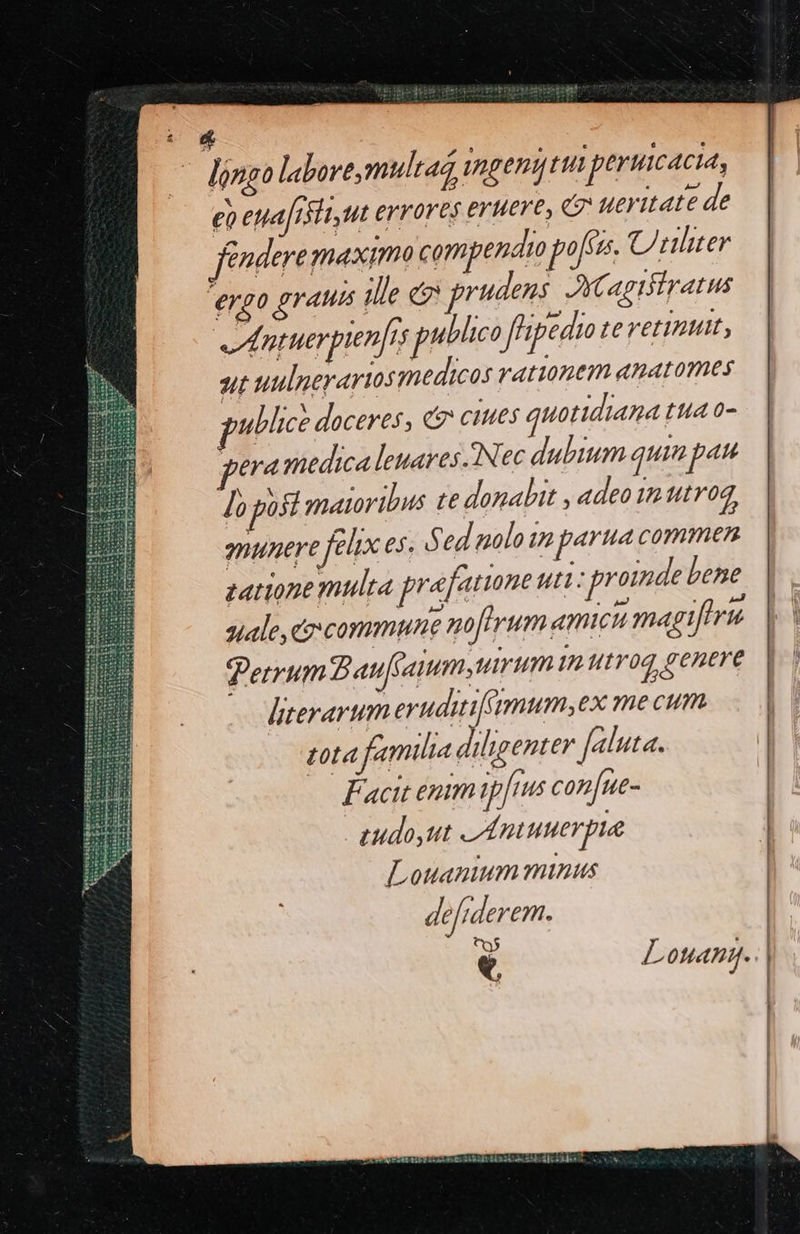 longo labore, multaq́; ingenij tui peruicacia,
eò euasisti, ut errores eruere, & ueritatē de
fendere maximo compendio possis. Vtiliter
ergo grauis ille & prudens Magistratus
Antuerpiensis publico stipēdio te retinuit,
ut uulnerarios medicos rationem anatomes
publicè doceres, & ciues quotidiana tua o-
pera medica leuares. Nec dubium quin pau
lò pòst maioribus te donabit, adeo in utroq;
munere felix es. Sed nolo in parua commen
tatione multa præfatione uti: proinde bene
uale, & commune nostrum amicū magistrū
Petrum Baussaium, uirum in utroq; genere
literarum eruditissimum, ex me cum
tota familia diligenter saluta.
Facit enim ipsius consue-
tudo, ut Antuuerpiæ
Louanium minus
desiderem.
Louanij.